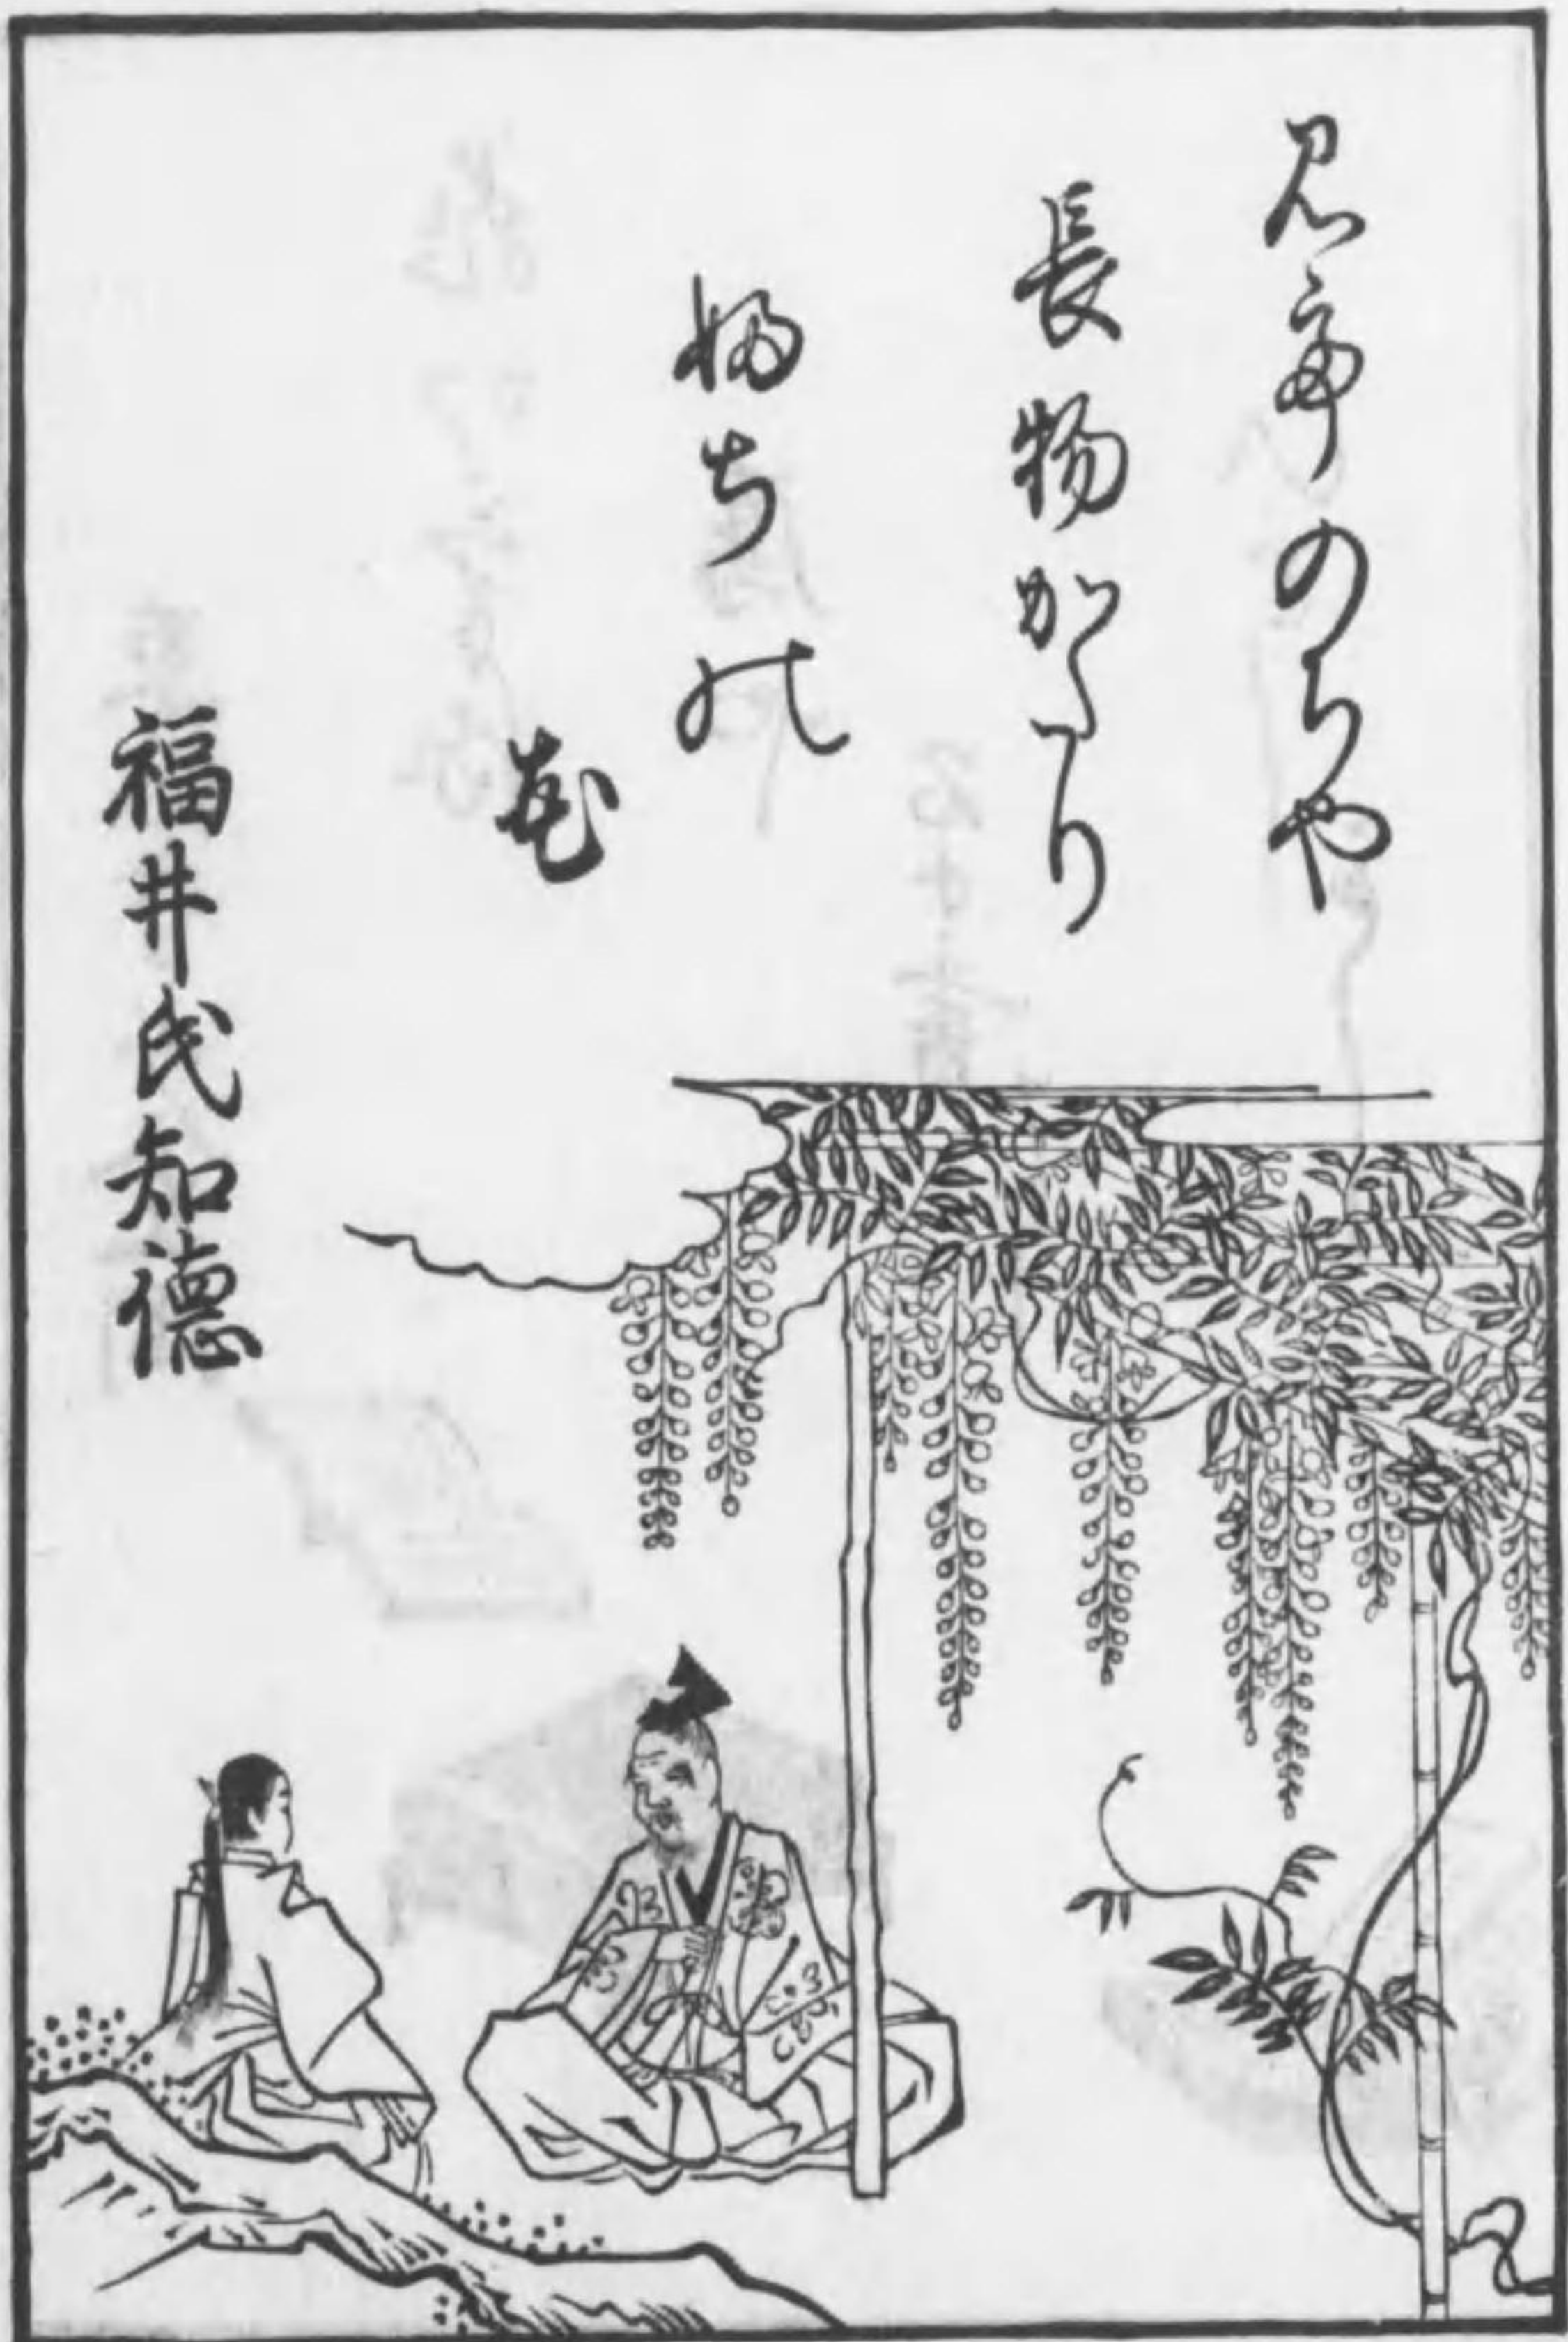 見亭のちや
長物かたり
婦ちの
花
福井氏知徳